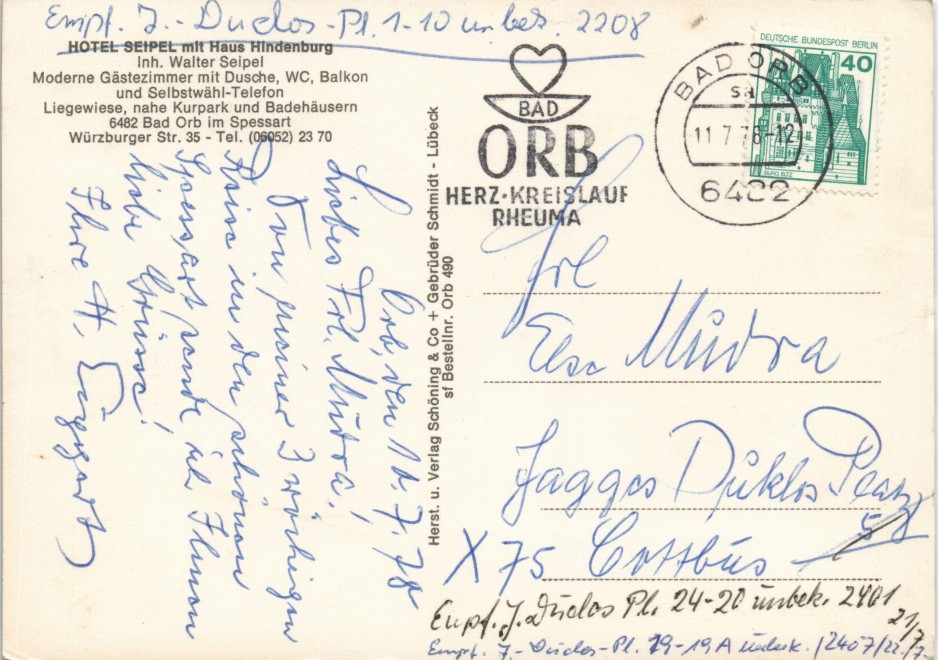 Empf. J. Duclos-Pl. 1-10 unbek. 2208
HOTEL SEIPEL mit Haus Hindenburg
Inh. Walter Seipel
Moderne Gästezimmer mit Dusche, WC, Balkon
und Selbstwähl-Telefon
Liegewiese, nahe Kurpark und Badehäusern
6482 Bad Orb im Spessart
Würzburger Str. 35 - Tel. (06052) 23 70
Orb, den 10.7.78
Liebes Frl. Mudra!
Von meiner 3 wöchigen
Reise in den schönen
Spessart sende ich Ihnen
liebe Grüsse!
Ihre H.
Herst. u. Verlag Schöning & Co + Gebrüder Schmidt - Lübeck
sf Bestellnr. Orb 490
BAD
ORB
HERZ·KREISLAUF
RHEUMA
BAD ORB
sa
11.7.78-12
6482
DEUTSCHE BUNDESPOST BERLIN
40
BURG ELTZ
Frl
Else Mudra
Jagges Duklos Platz
5
X 75 Cottbus
Empf. J. Duclos Pl. 24-20 unbek. 2401
21/7
Empf. J.-Duclos-Pl. 19-19A unbek. /2407/22./7.